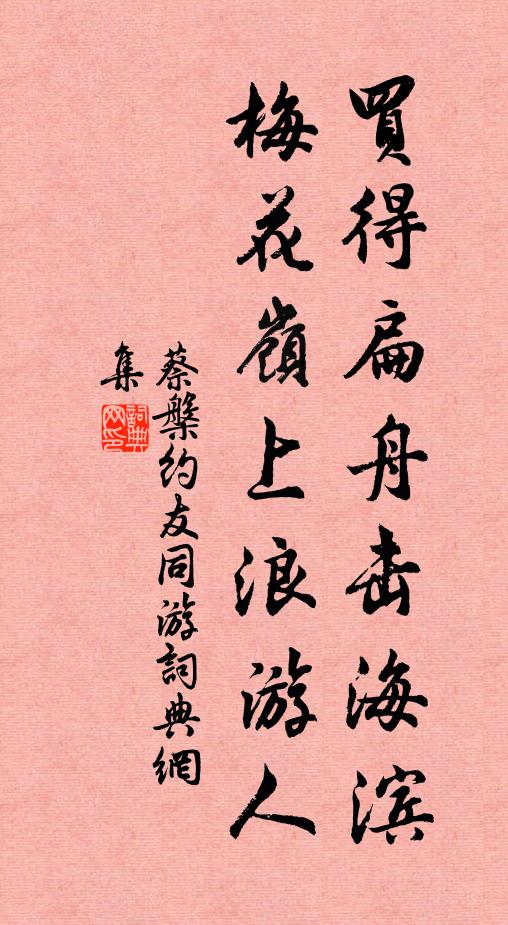 買得扁舟击海滨
梅花嶺上浪游人
蔡槃约友同游詞典網
集
詞典网印